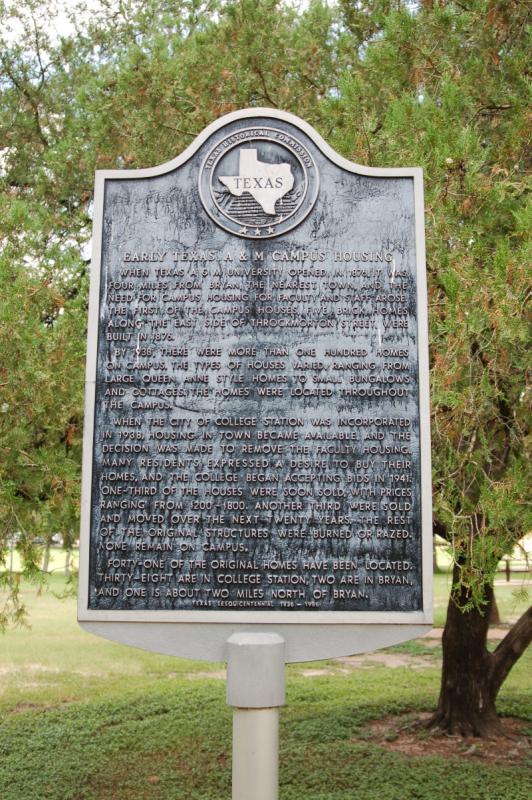 TEXAS HISTORICAL COMMISSION
TEXAS
EARLY TEXAS A & M CAMPUS HOUSING
WHEN TEXAS A & M UNIVERSITY OPENED IN 1876, IT WAS
FOUR MILES FROM BRYAN, THE NEAREST TOWN, AND THE
NEED FOR CAMPUS HOUSING FOR FACULTY AND STAFF AROSE.
THE FIRST OF THE CAMPUS HOUSES, FIVE BRICK HOMES
ALONG THE EAST SIDE OF THROCKMORTON STREET, WERE
BUILT IN 1876.
BY 1938, THERE WERE MORE THAN ONE HUNDRED HOMES
ON CAMPUS. THE TYPES OF HOUSES VARIED, RANGING FROM
LARGE QUEEN ANNE STYLE HOMES TO SMALL BUNGALOWS
AND COTTAGES. THE HOMES WERE LOCATED THROUGHOUT
THE CAMPUS.
WHEN THE CITY OF COLLEGE STATION WAS INCORPORATED
IN 1938, HOUSING IN TOWN BECAME AVAILABLE, AND THE
DECISION WAS MADE TO REMOVE THE FACULTY HOUSING.
MANY RESIDENTS EXPRESSED A DESIRE TO BUY THEIR
HOMES, AND THE COLLEGE BEGAN ACCEPTING BIDS IN 1941.
ONE-THIRD OF THE HOUSES WERE SOON SOLD, WITH PRICES
RANGING FROM $200-$800. ANOTHER THIRD WERE SOLD
AND MOVED OVER THE NEXT TWENTY YEARS. THE REST
OF THE ORIGINAL STRUCTURES WERE BURNED OR RAZED.
NONE REMAIN ON CAMPUS.
FORTY-ONE OF THE ORIGINAL HOMES HAVE BEEN LOCATED.
THIRTY-EIGHT ARE IN COLLEGE STATION, TWO ARE IN BRYAN,
AND ONE IS ABOUT TWO MILES NORTH OF BRYAN.
TEXAS SESQUICENTENNIAL 1836 - 1986